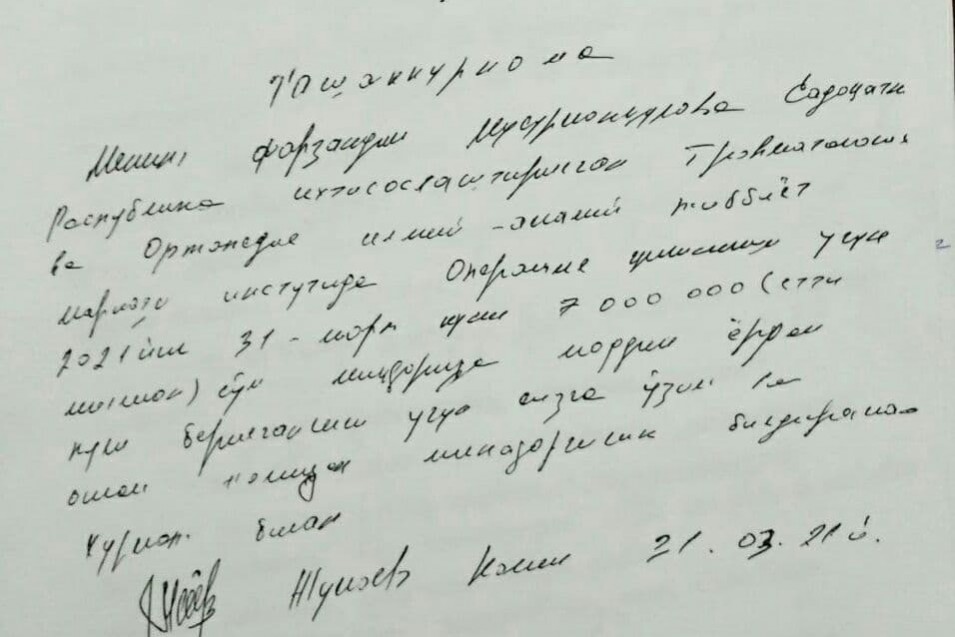 Ташаккурнома
Менинг фарзандим Садоқатни
Республика ихтисослаштирилган Травматология
ва Ортопедия илмий-амалий тиббиёт
маркази институтида Операция қилиниши учун
2021 йил 31-март куни 7 000 000 (етти
миллион) сўм миқдорида моддий ёрдам
пули берилганлиги учун сизга ўзим ва
оилам номидан миннадорчилик билдираман
Хурмат билан
Жўлаев 21.03.21й.